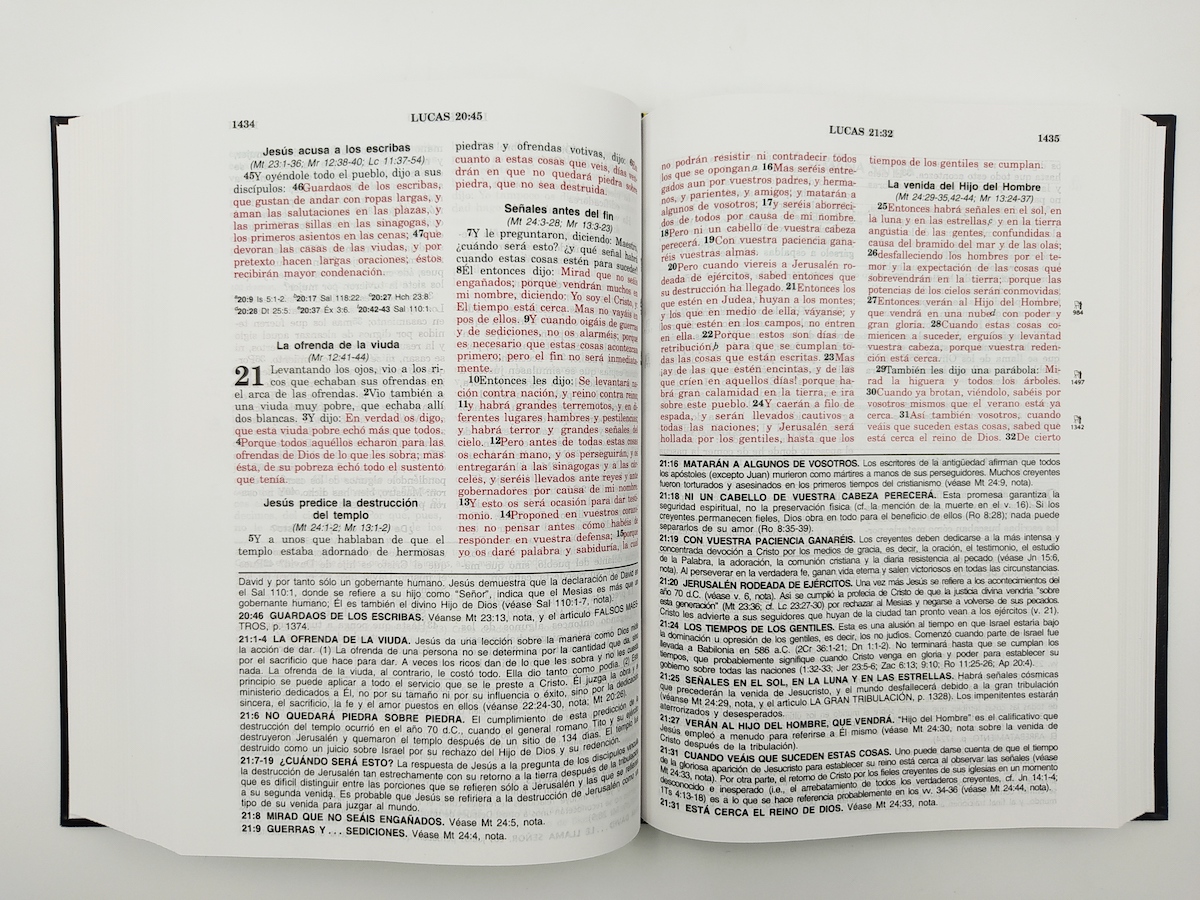 1434
LUCAS 20:45
Jesús acusa a los escribas
(Mt 23:1-36; Mr 12:38-40; Lc 11:37-54)
45Y oyéndole todo el pueblo, dijo a sus
discípulos: 46Guardaos de los escribas,
que gustan de andar con ropas largas, y
aman las salutaciones en las plazas, y
las primeras sillas en las sinagogas, y
los primeros asientos en las cenas; 47que
devoran las casas de las viudas, y por
pretexto hacen largas oraciones; éstos
recibirán mayor condenación.
20:9 Is 5:1-2. 20:17 Sal 118:22. 20:27 Hch 23:8.
20:28 Dt 25:5. 20:37 Éx 3:6. 20:42-43 Sal 110:1.
La ofrenda de la viuda
(Mr 12:41-44)
21 Levantando los ojos, vio a los ri-
cos que echaban sus ofrendas en
el arca de las ofrendas. 2Vio también a
una viuda muy pobre, que echaba allí
dos blancas. 3Y dijo: En verdad os digo,
que esta viuda pobre echó más que todos.
4Porque todos aquéllos echaron para las
ofrendas de Dios de lo que les sobra; mas
ésta, de su pobreza echó todo el sustento
que tenía.
Jesús predice la destrucción
del templo
(Mt 24:1-2; Mr 13:1-2)
5Y a unos que hablaban de que el
templo estaba adornado de hermosas
piedras y ofrendas votivas, dijo: 6En
cuanto a estas cosas que veis, días ven-
drán en que no quedará piedra sobre
piedra, que no sea destruida.
Señales antes del fin
(Mt 24:3-28; Mr 13:3-23)
7Y le preguntaron, diciendo: Maestro,
¿cuándo será esto? ¿y qué señal habrá
cuando estas cosas estén para suceder?
8Él entonces dijo: Mirad que no seáis
engañados; porque vendrán muchos en
mi nombre, diciendo: Yo soy el Cristo, y:
El tiempo está cerca. Mas no vayáis en
pos de ellos. 9Y cuando oigáis de guerras
y de sediciones, no os alarméis; porque
es necesario que estas cosas acontezcan
primero; pero el fin no será inmediata-
mente.
10Entonces les dijo: Se levantará na-
ción contra nación, y reino contra reino;
11y habrá grandes terremotos, y en di-
ferentes lugares hambres y pestilencias;
y habrá terror y grandes señales del
cielo. 12Pero antes de todas estas cosas
os echarán mano, y os perseguirán, y os
entregarán a las sinagogas y a las cár-
celes, y seréis llevados ante reyes y ante
gobernadores por causa de mi nombre.
13Y esto os será ocasión para dar testi-
monio. 14Proponed en vuestros corazo-
nes no pensar antes cómo habéis de
responder en vuestra defensa; 15porque
yo os daré palabra y sabiduría, la cual
David y por tanto sólo un gobernante humano. Jesús demuestra que la declaración de David en
el Sal 110:1, donde se refiere a su hijo como "Señor", indica que el Mesías es más que un
gobernante humano; Él es también el divino Hijo de Dios (véase Sal 110:1-7, nota).
20:46 GUARDAOS DE LOS ESCRIBAS. Véanse Mt 23:13, nota, y el artículo FALSOS MAES-
TROS, p. 1374.
21:1-4 LA OFRENDA DE LA VIUDA. Jesús da una lección sobre la manera como Dios mide
la acción de dar. (1) La ofrenda de una persona no se determina por la cantidad que da, sino
por el sacrificio que hace para dar. A veces los ricos dan de lo que les sobra y no les cuesta
nada. La ofrenda de la viuda, al contrario, le costó todo. Ella dio tanto como podía. (2) Este
principio se puede aplicar a todo el servicio que se le preste a Cristo. Él juzga la obra y el
ministerio dedicados a Él, no por su tamaño ni por su influencia o éxito, sino por la dedicación
sincera, el sacrificio, la fe y el amor puestos en ellos (véanse 22:24-30, nota; Mt 20:26).
21:6 NO QUEDARÁ PIEDRA SOBRE PIEDRA. El cumplimiento de esta predicción de la
destrucción del templo ocurrió en el año 70 d.C., cuando el general romano Tito y su ejército
destruyeron Jerusalén y quemaron el templo después de un sitio de 134 días. El templo fue
destruido como un juicio sobre Israel por su rechazo del Hijo de Dios y su redención.
21:7-19 ¿CUÁNDO SERÁ ESTO? La respuesta de Jesús a la pregunta de los discípulos vincula
la destrucción de Jerusalén tan estrechamente con su retorno a la tierra después de la tribulación
que es difícil distinguir entre las porciones que se refieren sólo a Jerusalén y las que se refieren
a su segunda venida. Es probable que Jesús se refiriera a la destrucción de Jerusalén como un
tipo de su venida para juzgar al mundo.
21:8 MIRAD QUE NO SEÁIS ENGAÑADOS. Véase Mt 24:5, nota.
21:9 GUERRAS Y . . . SEDICIONES. Véase Mt 24:4, nota.
LUCAS 21:32
1435
no podrán resistir ni contradecir todos
los que se opongan.a 16Mas seréis entre-
gados aun por vuestros padres, y herma-
nos, y parientes, y amigos; y matarán a
algunos de vosotros; 17y seréis aborreci-
dos de todos por causa de mi nombre.
18Pero ni un cabello de vuestra cabeza
perecerá. 19Con vuestra paciencia gana-
réis vuestras almas.
20Pero cuando viereis a Jerusalén ro-
deada de ejércitos, sabed entonces que
su destrucción ha llegado. 21Entonces los
que estén en Judea, huyan a los montes;
y los que en medio de ella, váyanse; y
los que estén en los campos, no entren
en ella. 22Porque estos son días de
retribución,b para que se cumplan to-
das las cosas que están escritas. 23Mas
¡ay de las que estén encintas, y de las
que críen en aquellos días! porque ha-
brá gran calamidad en la tierra, e ira
sobre este pueblo. 24Y caerán a filo de
espada, y serán llevados cautivos a
todas las naciones; y Jerusalén será
hollada por los gentiles, hasta que los
tiempos de los gentiles se cumplan.
La venida del Hijo del Hombre
(Mt 24:29-35,42-44; Mr 13:24-37)
25Entonces habrá señales en el sol, en
la luna y en las estrellas,c y en la tierra
angustia de las gentes, confundidas a
causa del bramido del mar y de las olas;
26desfalleciendo los hombres por el te-
mor y la expectación de las cosas que
sobrevendrán en la tierra; porque las
potencias de los cielos serán conmovidas.
27Entonces verán al Hijo del Hombre,
que vendrá en una nubed con poder y
gran gloria. 28Cuando estas cosas co-
miencen a suceder, erguíos y levantad
vuestra cabeza, porque vuestra reden-
ción está cerca.
29También les dijo una parábola: Mi-
rad la higuera y todos los árboles.
30Cuando ya brotan, viéndolo, sabéis por
vosotros mismos que el verano está ya
cerca. 31Así también vosotros, cuando
veáis que suceden estas cosas, sabed que
está cerca el reino de Dios. 32De cierto
984
1497
1342
21:16 MATARÁN A ALGUNOS DE VOSOTROS. Los escritores de la antigüedad afirman que todos
los apóstoles (excepto Juan) murieron como mártires a manos de sus perseguidores. Muchos creyentes
fueron torturados y asesinados en los primeros tiempos del cristianismo (véase Mt 24:9, nota).
21:18 NI UN CABELLO DE VUESTRA CABEZA PERECERÁ. Esta promesa garantiza la
seguridad espiritual, no la preservación física (cf. la mención de la muerte en el v. 16). Si los
creyentes permanecen fieles, Dios obra en todo para el beneficio de ellos (Ro 8:28); nada puede
separarlos de su amor (Ro 8:35-39).
21:19 CON VUESTRA PACIENCIA GANARÉIS. Los creyentes deben dedicarse a la más intensa y
concentrada devoción a Cristo por los medios de gracia, es decir, la oración, el testimonio, el estudio
de la Palabra, la adoración, la comunión cristiana y la diaria resistencia al pecado (véase Jn 15:6,
nota). Al perseverar en la verdadera fe, ganan vida eterna y salen victoriosos en todas las circunstancias.
21:20 JERUSALÉN RODEADA DE EJÉRCITOS. Una vez más Jesús se refiere a los acontecimientos del
año 70 d.C. (véase v. 6, nota). Así se cumplió la profecía de Cristo de que la justicia divina vendría "sobre
esta generación" (Mt 23:36; cf. Lc 23:27-30) por rechazar al Mesías y negarse a volverse de sus pecados.
Cristo les advierte a sus seguidores que huyan de la ciudad tan pronto vean a los ejércitos (v. 21).
21:24 LOS TIEMPOS DE LOS GENTILES. Esta es una alusión al tiempo en que Israel estaría bajo
la dominación u opresión de los gentiles, es decir, los no judíos. Comenzó cuando parte de Israel fue
llevada a Babilonia en 586 a.C. (2Cr 36:1-21; Dn 1:1-2). No terminará hasta que se cumplan los
tiempos, que probablemente signifique cuando Cristo venga en gloria y poder para establecer su
gobierno sobre todas las naciones (1:32-33; Jer 23:5-6; Zac 6:13; 9:10; Ro 11:25-26; Ap 20:4).
21:25 SEÑALES EN EL SOL, EN LA LUNA Y EN LAS ESTRELLAS. Habrá señales cósmicas
que precederán la venida de Jesucristo, y el mundo desfallecerá debido a la gran tribulación
(véanse Mt 24:29, nota, y el artículo LA GRAN TRIBULACIÓN, p. 1328). Los impenitentes estarán
aterrorizados y desesperados.
21:27 VERÁN AL HIJO DEL HOMBRE, QUE VENDRÁ. "Hijo del Hombre" es el calificativo que
Jesús empleó a menudo para referirse a Él mismo (véase Mt 24:30, nota sobre la venida de
Cristo después de la tribulación).
21:31 CUANDO VEÁIS QUE SUCEDEN ESTAS COSAS. Uno puede darse cuenta de que el tiempo
de la gloriosa aparición de Jesucristo para establecer su reino está cerca al observar las señales (véase
Mt 24:33, nota). Por otra parte, el retorno de Cristo por los fieles creyentes de sus iglesias en un momento
desconocido e inesperado (i.e., el arrebatamiento de todos los verdaderos creyentes, cf. Jn 14:1-4;
1Ts 4:13-18) es a lo que se hace referencia probablemente en los vv. 34-36 (véase Mt 24:44, nota).
21:31 ESTÁ CERCA EL REINO DE DIOS. Véase Mt 24:33, nota.